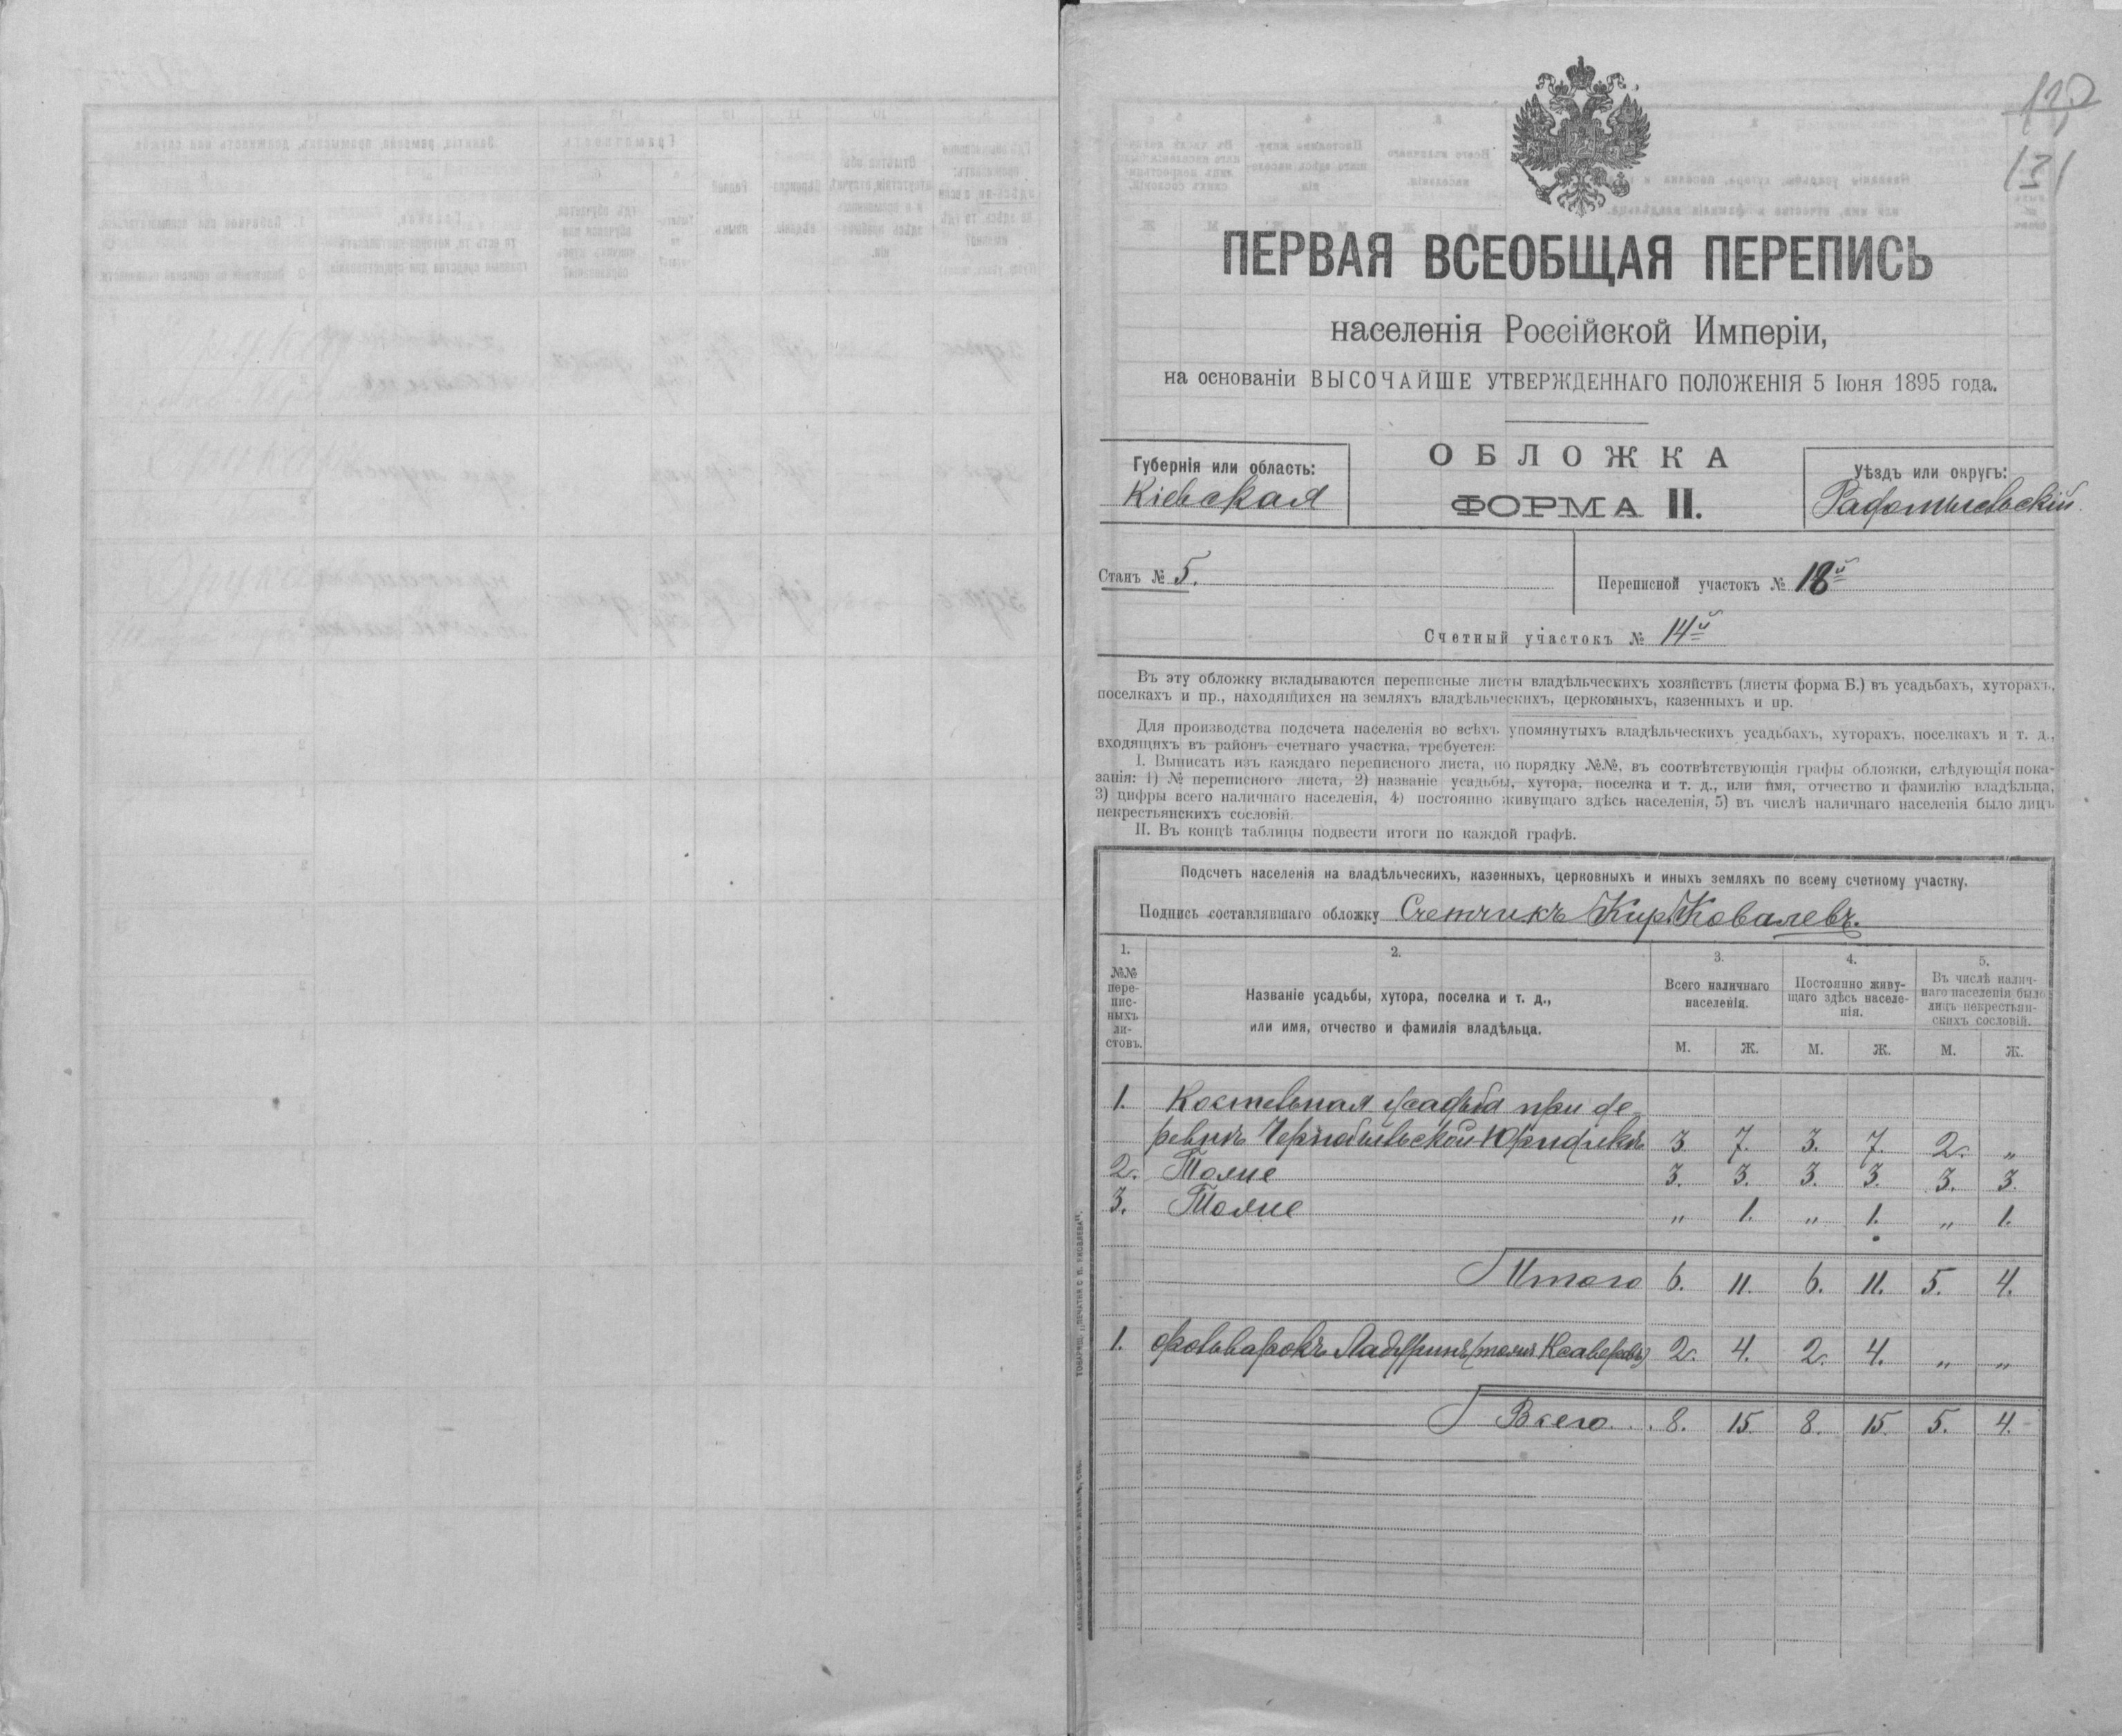 131
ПЕРВАЯ ВСЕОБЩАЯ ПЕРЕПИСЬ
населенія Россійской Имперіи,
на основаніи ВЫСОЧАЙШЕ УТВЕРЖДЕННАГО ПОЛОЖЕНІЯ 5 Іюня 1895 года.
ОБЛОЖКА
ФОРМА II.
Губернія или область:
Кіевская
Уѣздъ или округъ:
Радомысльскій.
Станъ № 5.
Переписной участокъ № 18й
Счетный участокъ № 14й
Въ эту обложку вкладываются переписные листы владѣльческихъ хозяйствъ (листы форма Б.) въ усадьбахъ, хуторахъ,
поселкахъ и пр., находящихся на земляхъ владѣльческихъ, церковныхъ, казенныхъ и пр.
Для производства подсчета населенія во всѣхъ упомянутыхъ владѣльческихъ усадьбахъ, хуторахъ, поселкахъ и т. д.,
входящихъ въ районъ счетнаго участка, требуется:
I. Выписать изъ каждаго переписного листа, по порядку №№, въ соотвѣтствующія графы обложки, слѣдующія пока-
занія: 1) № переписного листа, 2) названіе усадьбы, хутора, поселка и т. д., или имя, отчество и фамилію владѣльца,
3) цифры всего наличнаго населенія, 4) постоянно живущаго здѣсь населенія, 5) въ числѣ наличнаго населенія было лицъ
некрестьянскихъ сословій.
II. Въ концѣ таблицы подвести итоги по каждой графѣ.
Подсчетъ населенія на владѣльческихъ, казенныхъ, церковныхъ и иныхъ земляхъ по всему счетному участку.
Подпись составлявшаго обложку Счетчикъ Кир. Ковалевъ.
1. 2. 3. 4. 5.
№№ пере-пис-ныхъ ли-стовъ.
Названіе усадьбы, хутора, поселка и т. д.,
или имя, отчество и фамилія владѣльца.
Всего наличнаго населенія.
Постоянно живу-щаго здѣсь населе-нія.
Въ числѣ налич-наго населенія было лицъ некрестьян-скихъ сословій.
М. Ж. М. Ж. М. Ж.
1. Костельная усадьба при де-
ревнѣ Чернобыльской-Юридикѣ 3 7. 3. 7. 2. „
2. Тоже 3. 3. 3. 3. 3. 3.
3. Тоже „ 1. „ 1. „ 1.
Итого 6. 11. 6. 11. 5. 4.
1. Фольварокъ (тоже 2. 4. 2. 4. „ „
Всего 8. 15. 8. 15. 5. 4.